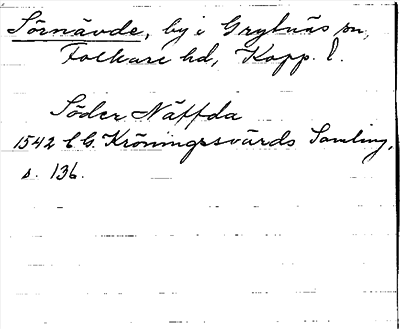 Sörnävde, by i Grytnäs sn,
Folkare hd, Kopp. l.
Söder Näffda
1542 C.G. Kröningssvärds Samling,
s. 136.